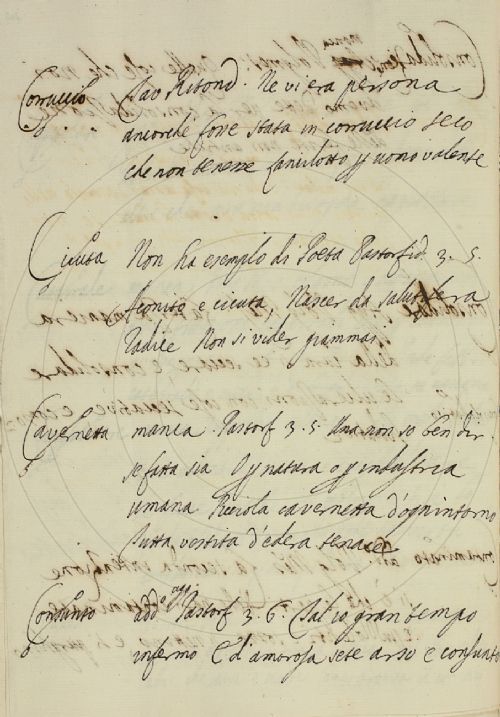 Corruccio Tav Ritond. Ne vi era persona
ancorche fosse stata in corruccio seco
che non tenesse Lancilotto p uomo valente
Cicuta Non ha esemplo di Poeta Pastorfid. 3. 5.
Aconito e cicuta, Nascer da salutifera
Radice Non si vider giammai
Cavernetta manca. Pastorf 3. 5 Una non so ben dir
se fatta sia O p natura o p industria
umana Picciola cavernetta d'ogn intorno
Tutta vestita d'edera tenace
Consunto add.o agg Pastorf 3. 6. Tal io gran tempo
infermo E d'amorosa sete arso e consunto